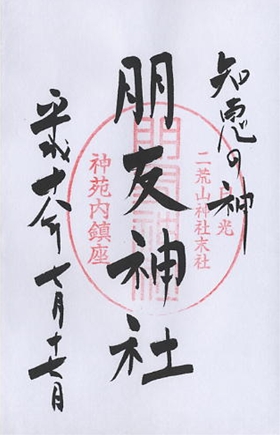 知恵の神
日光
二荒山神社末社
朋友神社
神苑内鎮座
平成十八年 七月十七日